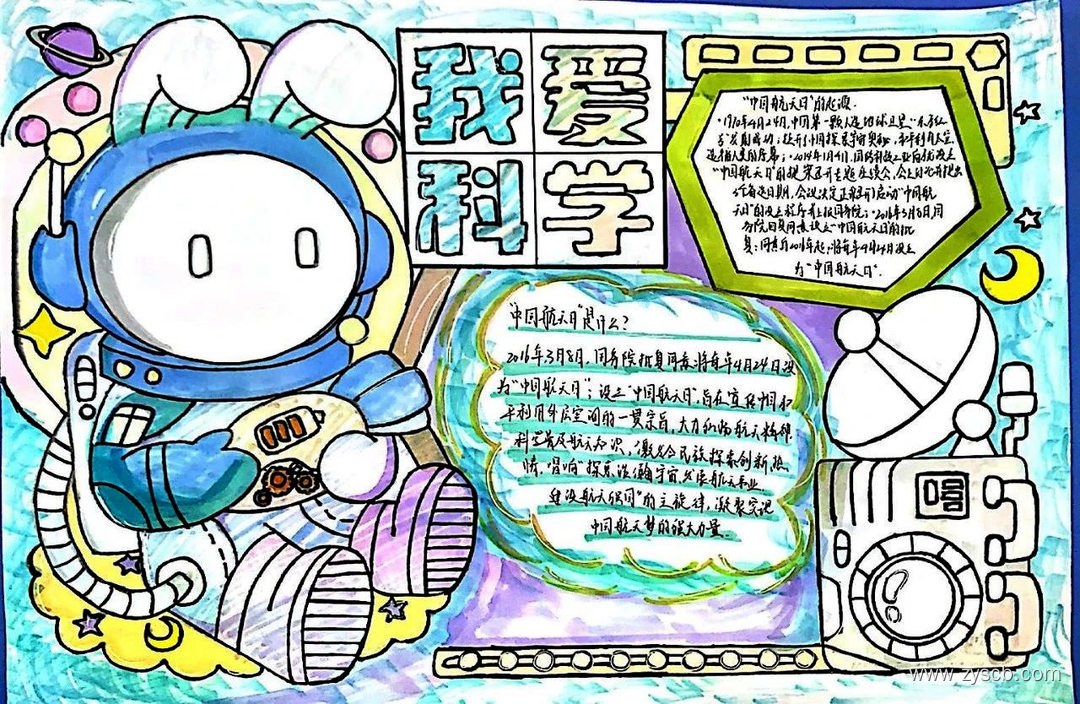 我爱
科学
"中国航天日"的起源.
1970年4月24日,中国第一颗人造地球卫星"东方红
"中国航天日"的提案召开主题座谈会,会上
日期,会议决定正式启动"中国航
天日"的设立程序并上报国务院;2016年3月8日,国
务院回复同意设立"中国航天日"的批
复:同意自2016年起,将每年4月24日设立
为"中国航天日".
"中国航天日"是什么?
2016年3月8日,国务院批复同意,将每年4月24日设
为"中国航天日";设立"中国航天日",旨在宣传中国和
平利用外层空间的一贯宗旨,大力弘扬航天精神,
科学普及航天知识,激发全民族探索创新热
情,唱响"探索浩瀚宇宙,发展航天事业
建设航天强国"的主旋律,凝聚实现
中国航天梦的强大力量.
www.zyscb.com